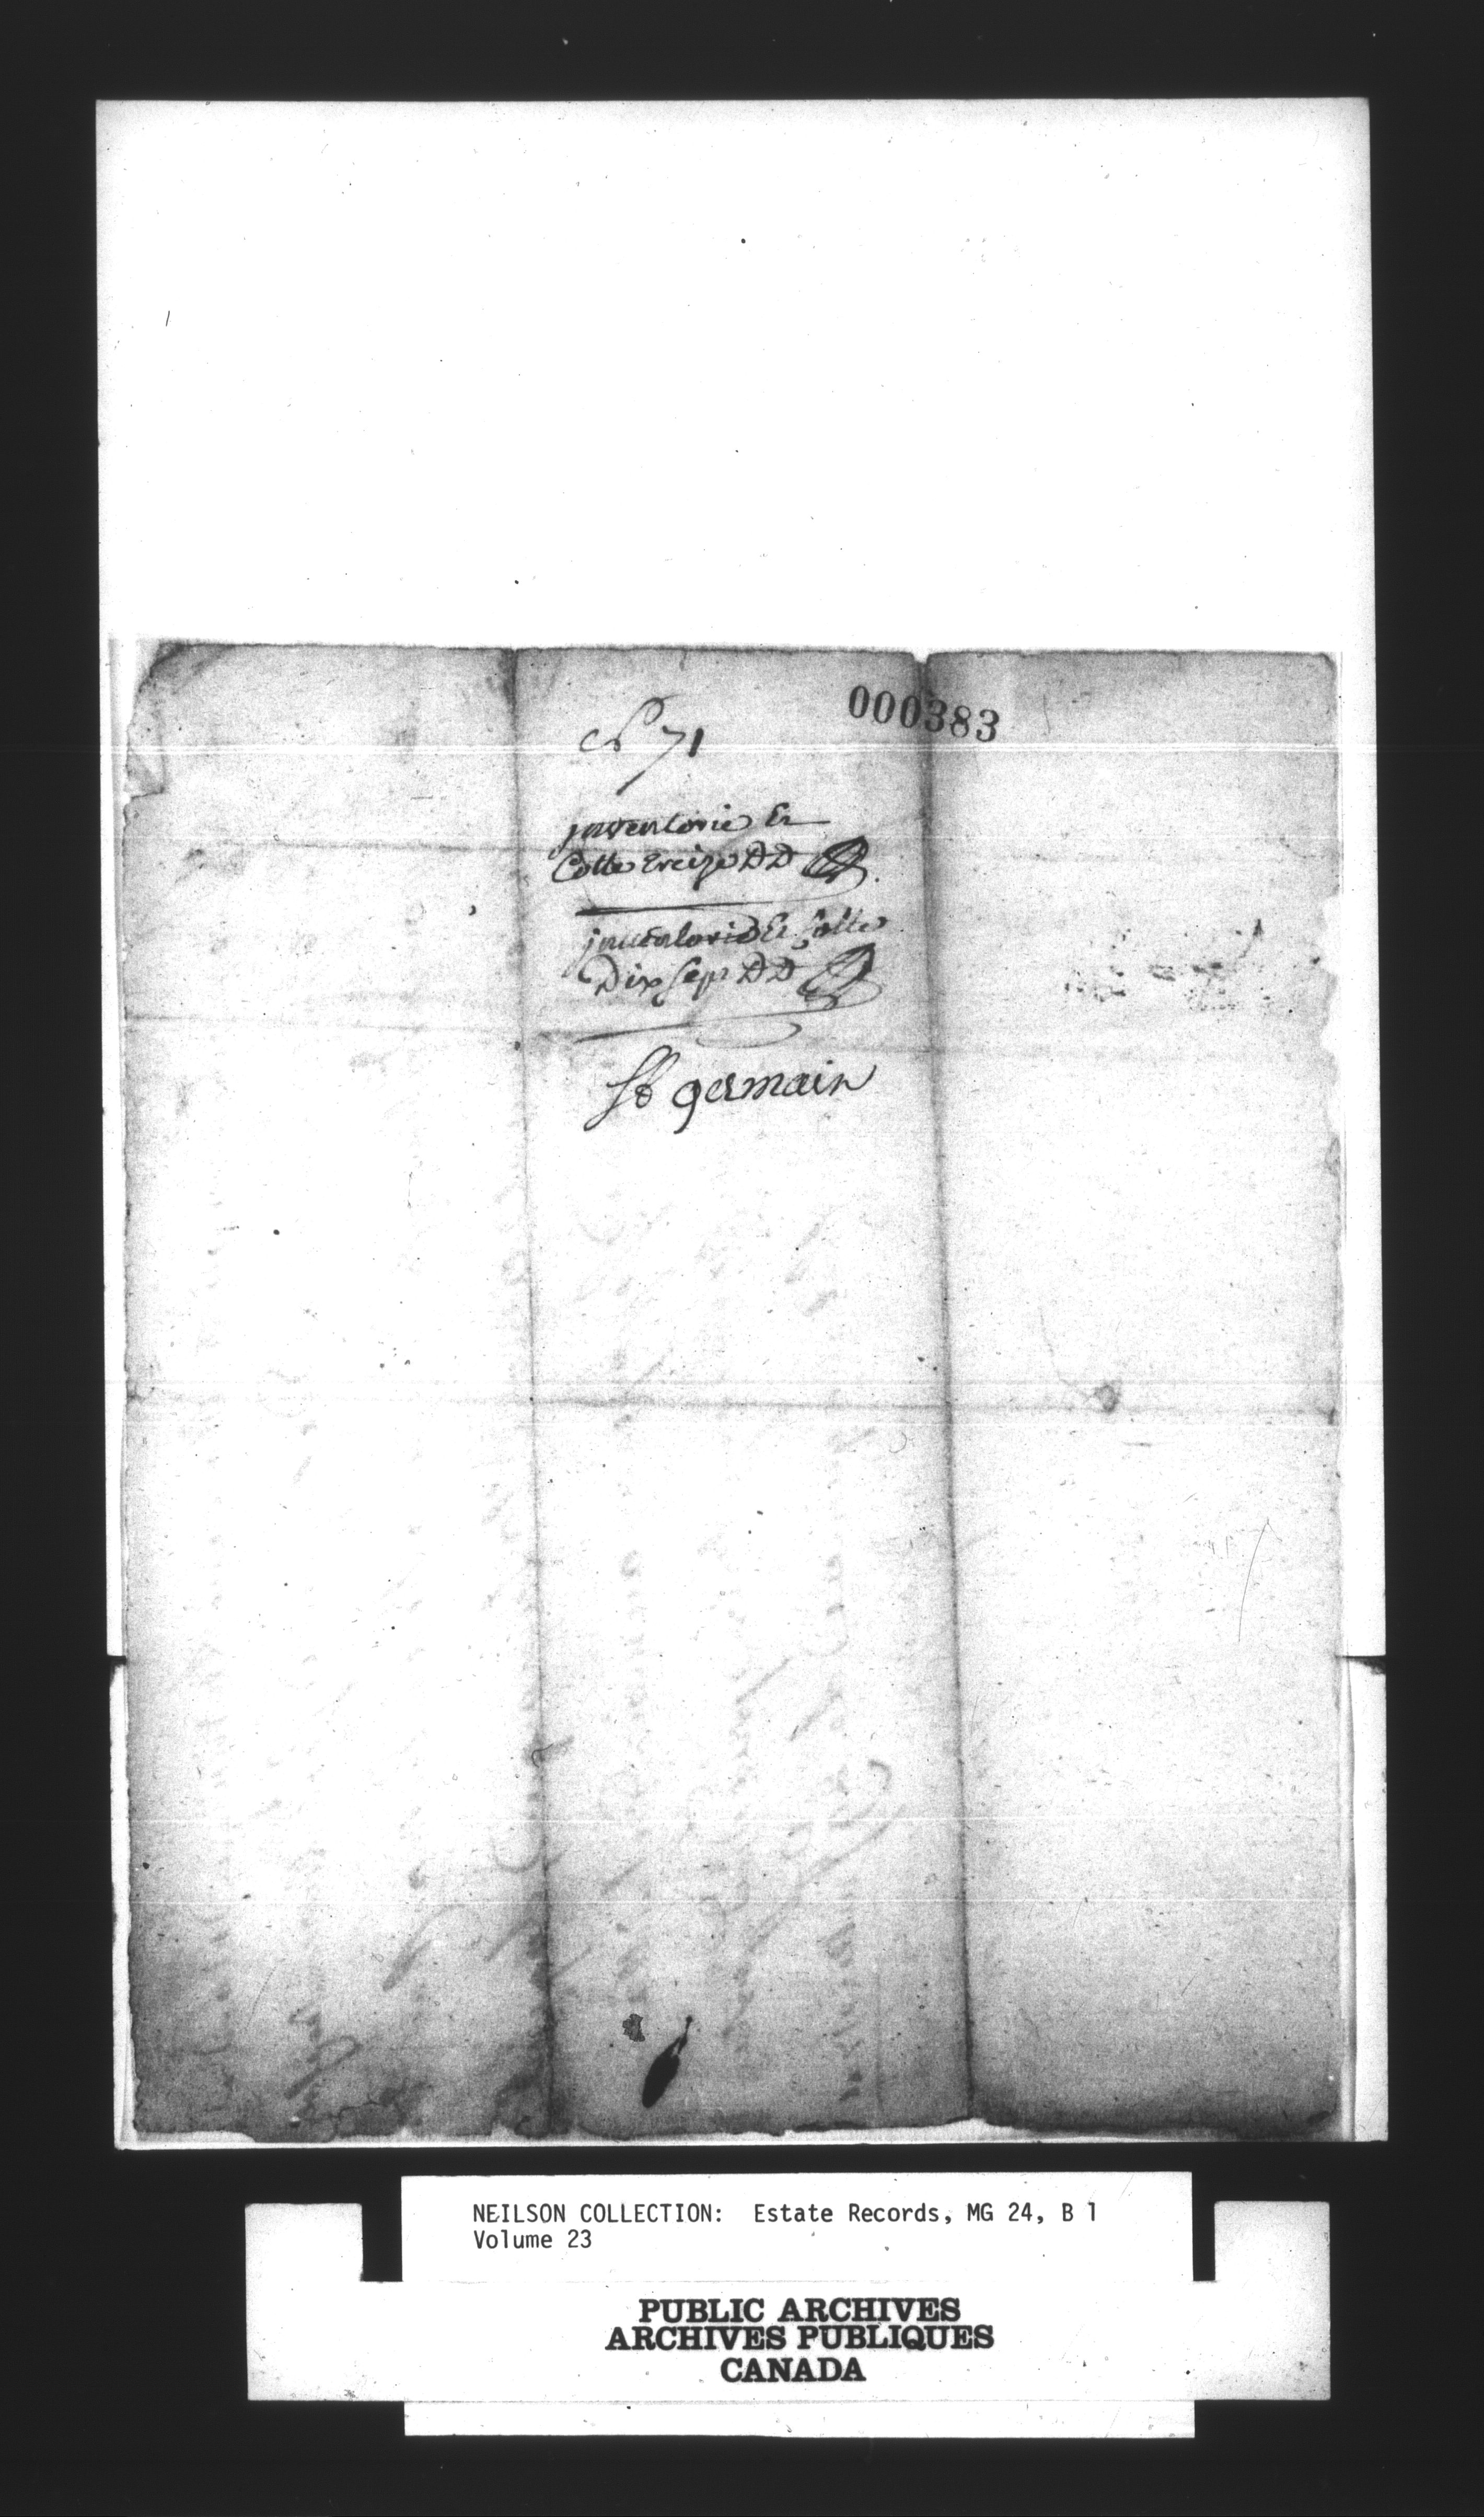 000383
N° 71
jnventorié Et
Cotté treize DD
jnventorié Et Cotté
Dix sept DD
St germain
NEILSON COLLECTION: Estate Records, MG 24, B 1
Volume 23
PUBLIC ARCHIVES
ARCHIVES PUBLIQUES
CANADA